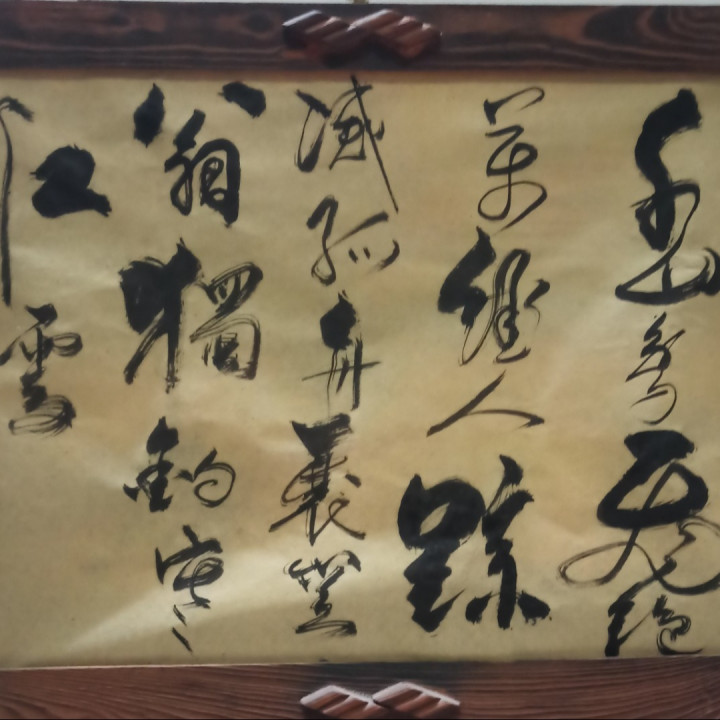 千山鳥飛絕
萬徑人踪
滅孤舟蓑笠
翁獨釣寒
江雪